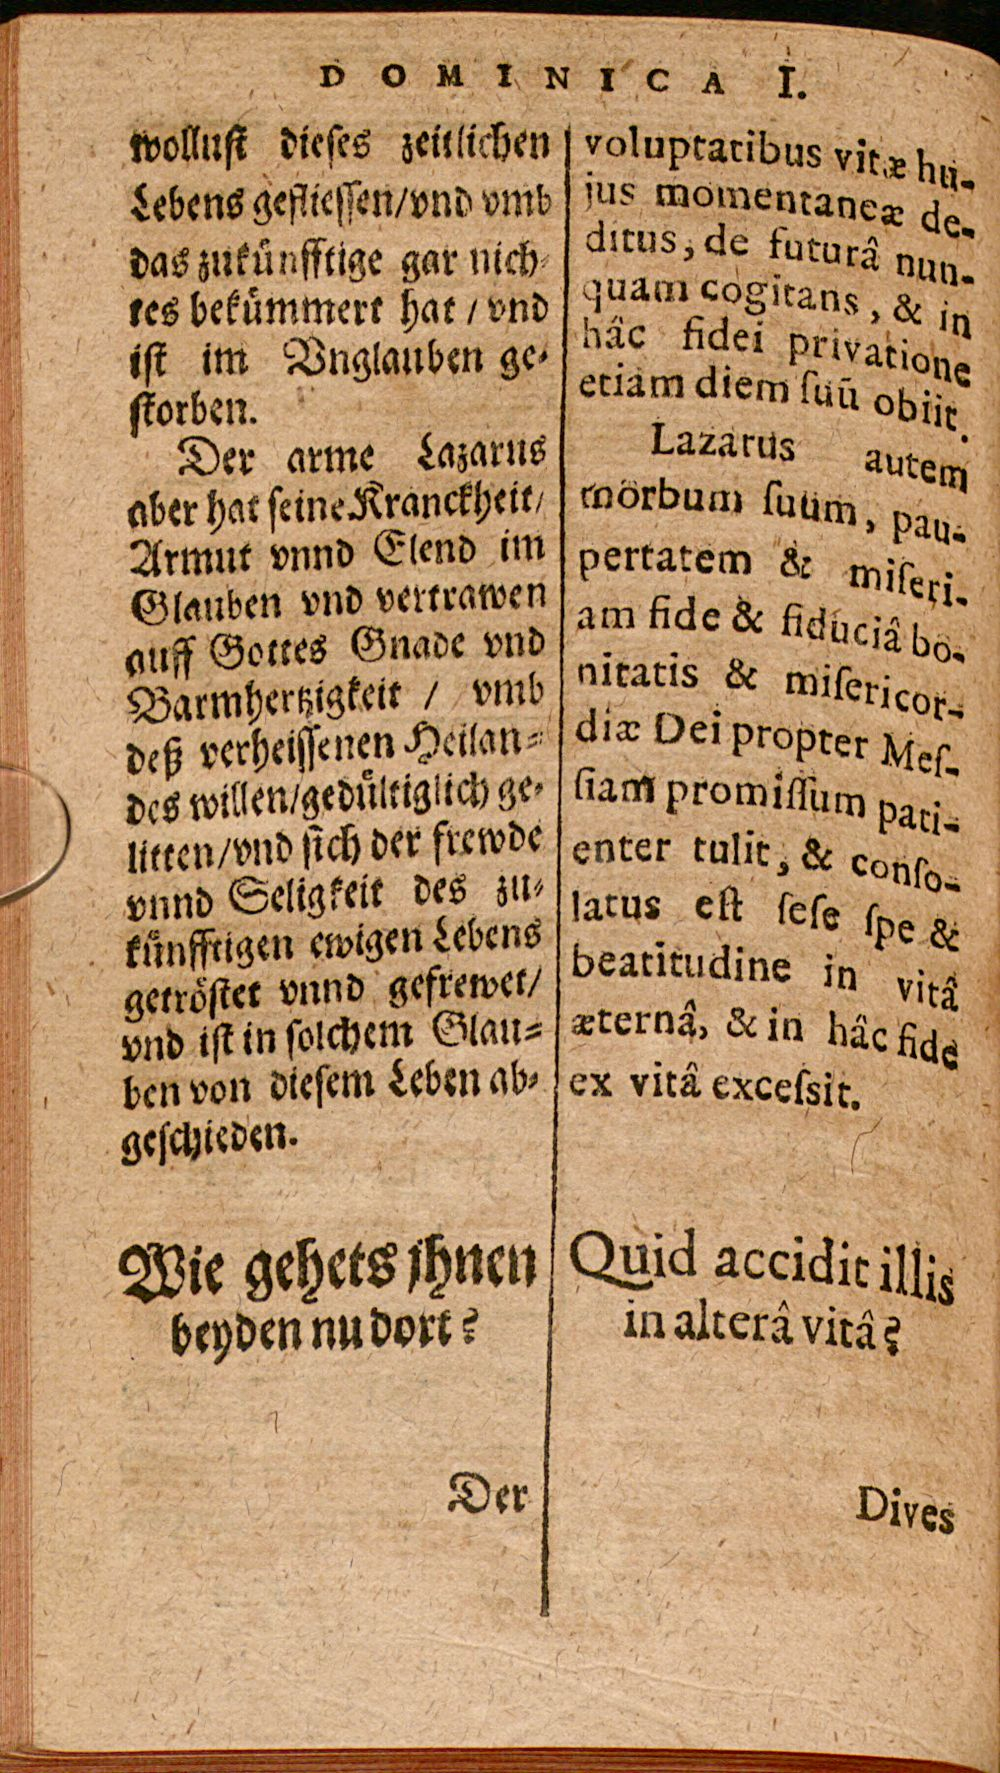 DOMINICA I.
wollust dieses zeitlichen
Lebens gefliessen/vnd vmb
das zukünfftige gar nich-
tes bekümmert hat / vnd
ist im Vnglauben ge-
storben.
Der arme Lazarus
aber hat seine Kranckheit/
Armut vnnd Elend im
Glauben vnd vertrawen
auff Gottes Gnade vnd
Barmhertzigkeit / vmb
deß verheissenen Heilan-
des willen/gedültiglich ge-
litten/vnd sich der frewde
vnnd Seligkeit des zu-
künfftigen ewigen Lebens
getröstet vnnd gefrewet/
vnd ist in solchem Glau-
ben von diesem Leben ab-
geschieden.
Wie gehets jhnen
beyden nu dort?
Der
voluptatibus vitæ hu-
jus momentaneæ de-
ditus, de futurâ nun-
quam cogitans, & in
hâc fidei privatione
etiam diem ſuũ obiit.
Lazarus autem
morbum ſuum, pau-
pertatem & miſeri-
am fide & fiduciâ bo-
nitatis & miſericor-
diæ Dei propter Meſ-
ſiam promiſſum pati-
enter tulit, & conſo-
latus eſt ſeſe ſpe &
beatitudine in vitâ
æternâ, & in hâc fide
ex vitâ exceſsit.
Quid accidit illis
in alterâ vitâ?
Dives